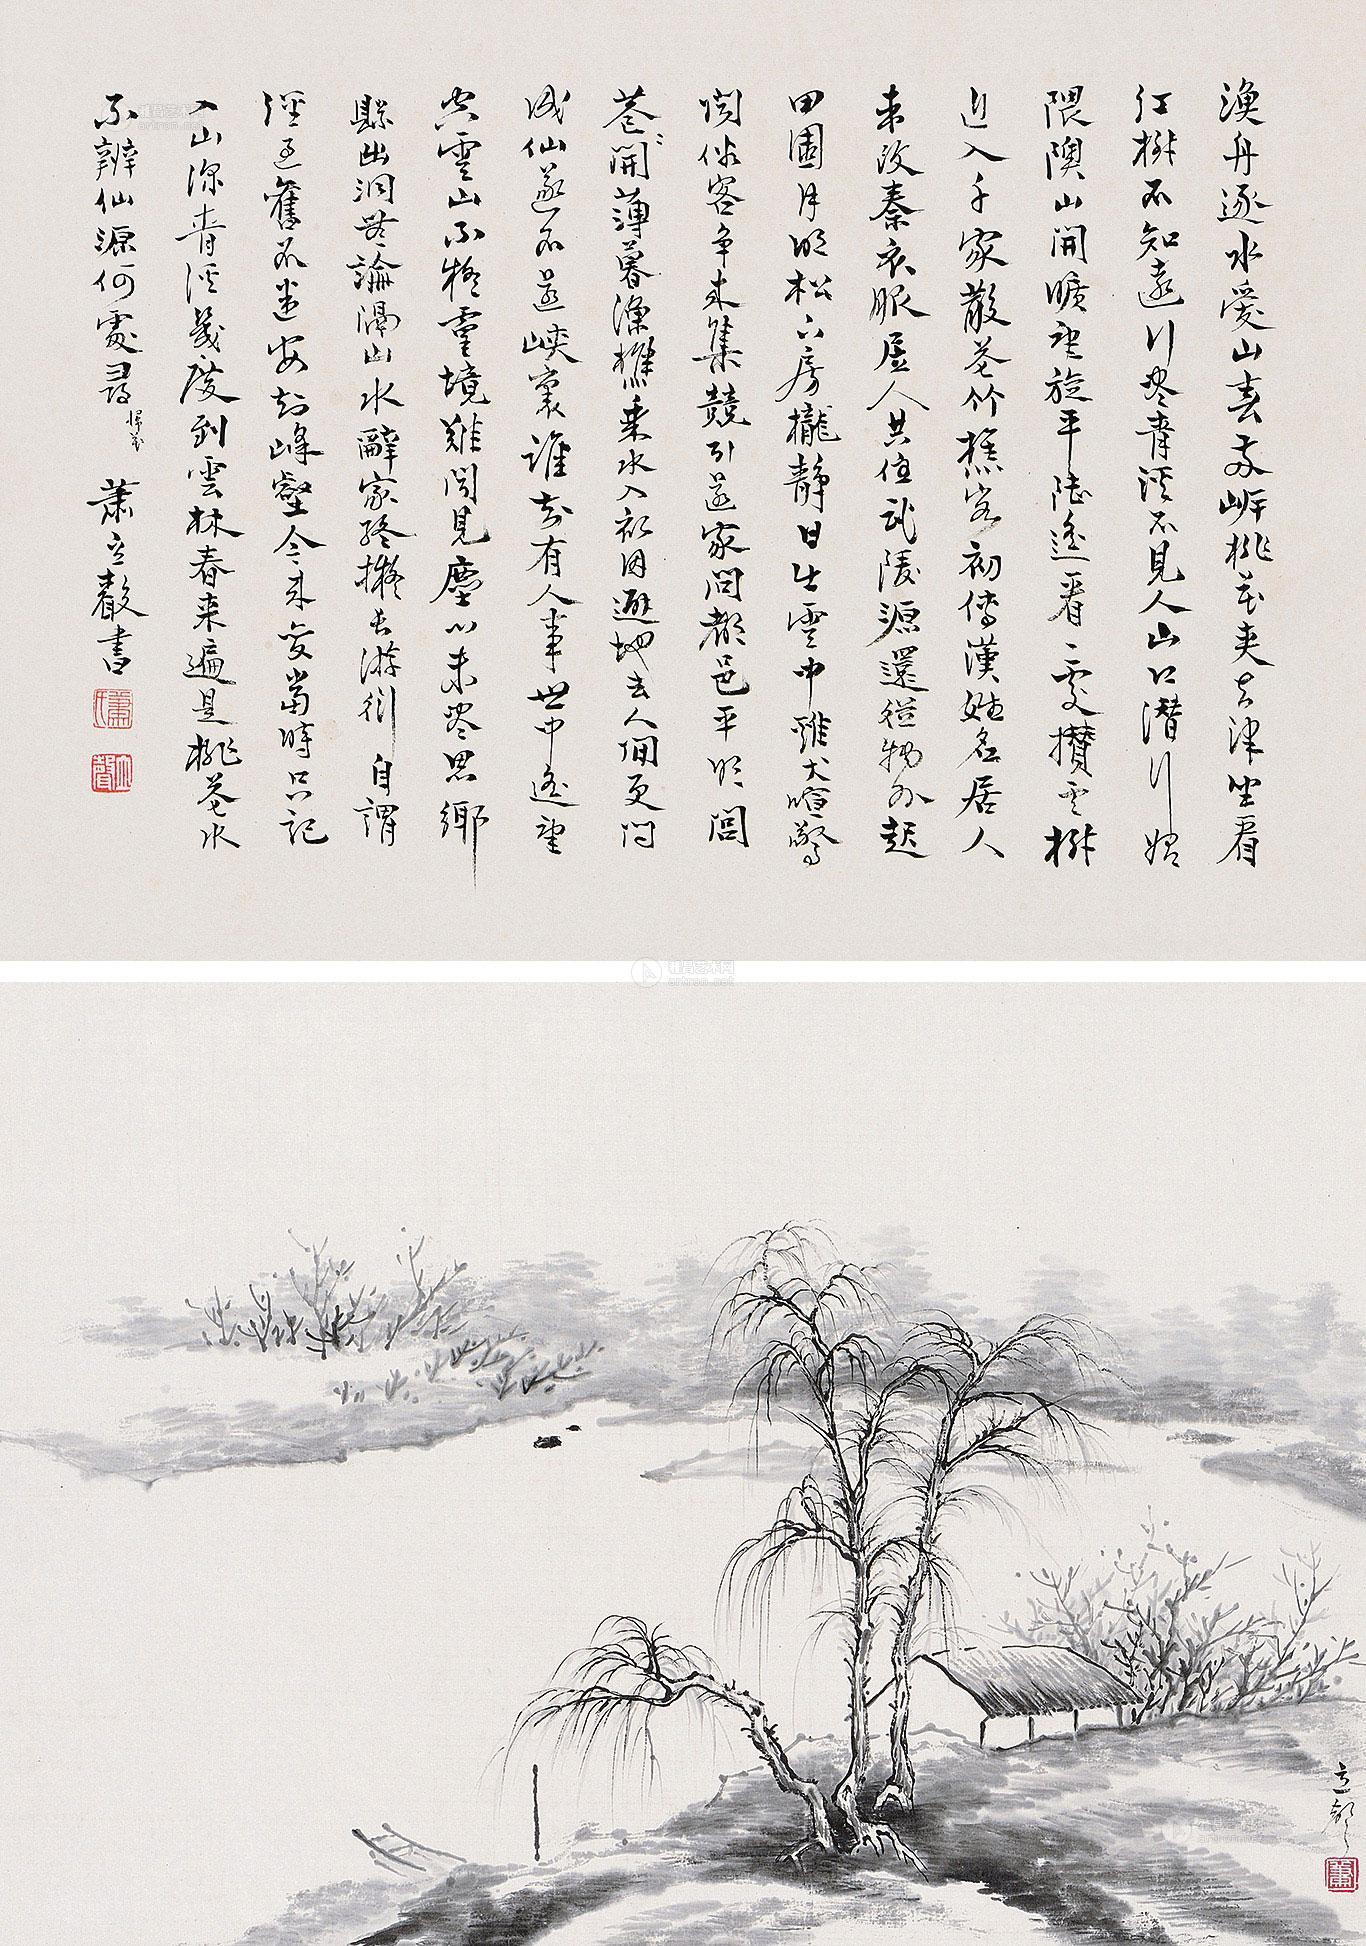 漁舟逐水愛山春兩岸桃花夾去津坐看
紅樹不知遠行盡青溪不見人山口潛行始
隈隩山開曠望旋平陸遙看一處攢雲樹
近入千家散花竹樵客初傳漢姓名居人
未改秦衣服居人共住武陵源還從物外起
田園月明松下房櫳靜日出雲中雞犬喧驚
聞俗客爭來集競引還家問都邑平明閭
巷開薄暮漁樵乘水入初因避地去人間更問
成仙遂不還峽裏誰知有人事世中遙望
空雲山不疑靈境難聞見塵心未盡思鄉
縣出洞無論隔山水辭家終擬長游衍自謂
經過舊不迷安知峰壑今來變當時只記
入山深青溪幾度到雲林春來遍是桃花水
不辨仙源何處尋 掃花 蕭立聲書
蕭氏
立聲
雅昌艺术网
artron.net
立聲
蕭